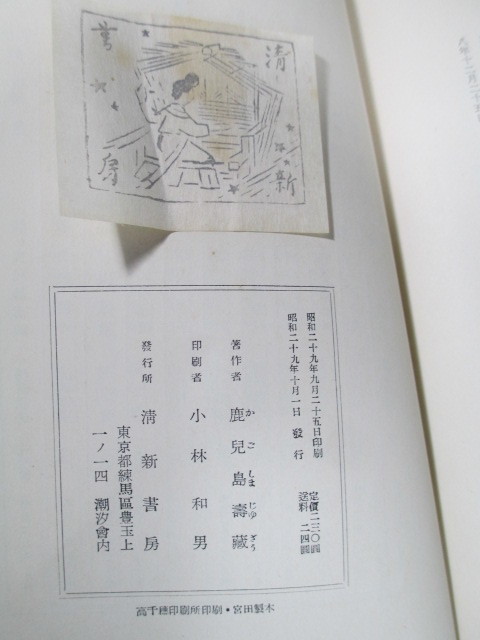 清新
書房
昭和二十九年九月二十五日印刷
昭和二十九年十月一日 發行
定價二三〇圓
送料 二四圓
著作者 鹿兒島壽藏
かごしまじゅぞう
印刷者 小林和男
發行所 淸新書房
東京都練馬區豊玉上
一ノ一四 潮汐會内
高千穂印刷所印刷・宮田製本